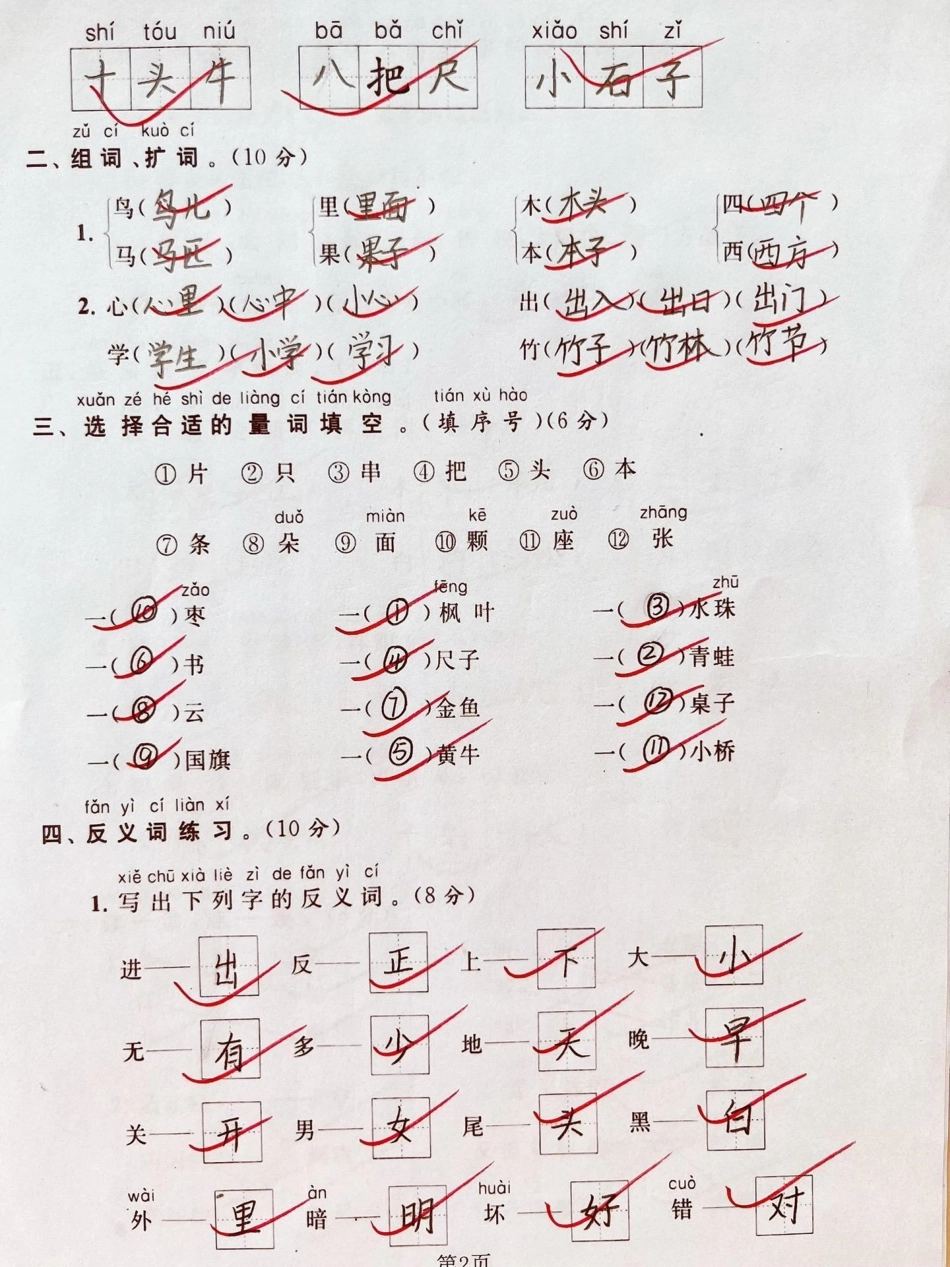 shí tóu niú bā bǎ chǐ xiǎo shí zǐ
十头牛 八把尺 小石子
zǔ cí kuò cí
二、组词、扩词。(10分)
鸟(鸟儿) 里(里面) 木(木头) 四(四个)
1.
马(马匹) 果(果子) 本(本子) 西(西方)
2. 心(心里)(心中)(小心) 出(出入)(出日)(出门)
学(学生)(小学)(学习) 竹(竹子)(竹林)(竹节)
xuǎn zé hé shì de liàng cí tián kòng tián xù hào
三、选择合适的量词填空。(填序号)(6分)
①片 ②只 ③串 ④把 ⑤头 ⑥本
duǒ miàn kē zuò zhāng
⑦条 ⑧朵 ⑨面 ⑩颗 ⑪座 ⑫张
zǎo fēng zhū
一(⑩)枣 一(①)枫叶 一(③)水珠
一(⑥)书 一(④)尺子 一(②)青蛙
一(⑧)云 一(⑦)金鱼 一(⑫)桌子
一(⑨)国旗 一(⑤)黄牛 一(⑪)小桥
fǎn yì cí liàn xí
四、反义词练习。(10分)
xiě chū xià liè zì de fǎn yì cí
1. 写出下列字的反义词。(8分)
进——出 反——正 上——下 大——小
无——有 多——少 地——天 晚——早
关——开 男——女 尾——头 黑——白
wài àn huài cuò
外——里 暗——明 坏——好 错——对
第2页